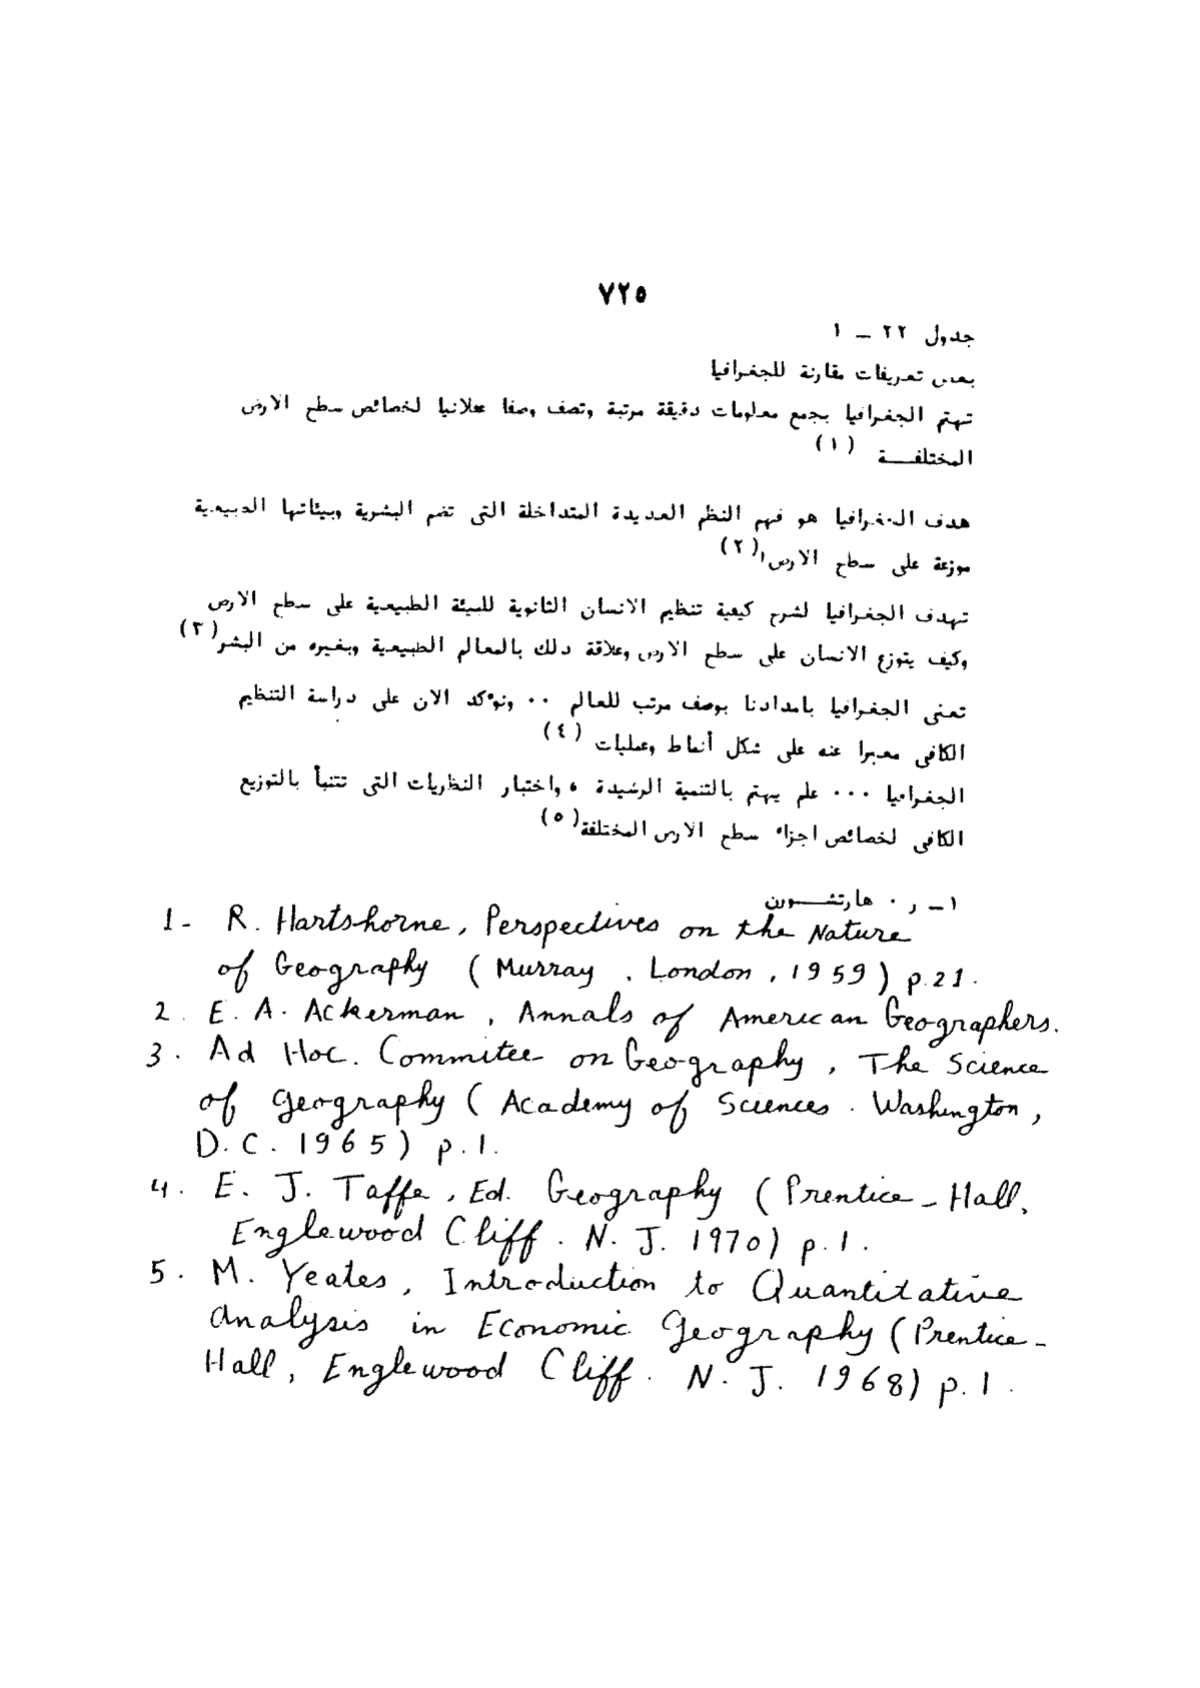 ٧٢٥
جدول ٢٢ ــ ١
بعض تعريفات مقارنة للجغرافيا
تهتم الجغرافيا بجمع معلومات دقيقة مرتبة وتصف وصفا عقلانيا لخصائص سطح الارض
المختلفـــة (١)
هدف الجغرافيا هو فهم النظم العديدة المتداخلة التى تضم البشرية وبيئاتها الطبيعية
موزعة على سطح الارض (٢)
تهدف الجغرافيا لشرح كيفية تنظيم الانسان الثانوية للبيئة الطبيعية على سطح الارض
وكيف يتوزع الانسان على سطح الارض وعلاقة ذلك بالمعالم الطبيعية وبغيره من البشر (٣)
تعنى الجغرافيا بامدادنا بوصف مرتب للعالم ٠٠ ونؤكد الان على دراسة التنظيم
الكافى معبرا عنه على شكل أنماط وعمليات (٤)
الجغرافيا ٠٠٠ علم يهتم بالتنمية الرشيدة ، واختبار النظريات التى تتنبأ بالتوزيع
الكافى لخصائص اجزاء سطح الارض المختلفة (٥)
١ــ ر ٠ هارتشـــورن
1- R. Hartshorne, Perspectives on the Nature
of Geography (Murray . London , 1959) p.21.
2. E. A. Ackerman , Annals of American Geographers.
3. Ad Hoc. Commitee on Geography , The Science
of Geography ( Academy of Sciences . Washington ,
D. C. 1965) p. 1.
4. E. J. Taffe , Ed. Geography ( Prentice - Hall,
Englewood Cliff . N. J. 1970) p. 1.
5. M. Yeates , Introduction to Quantitative
Analysis in Economic Geography ( Prentice -
Hall, Englewood Cliff. N. J. 1968) p. 1.